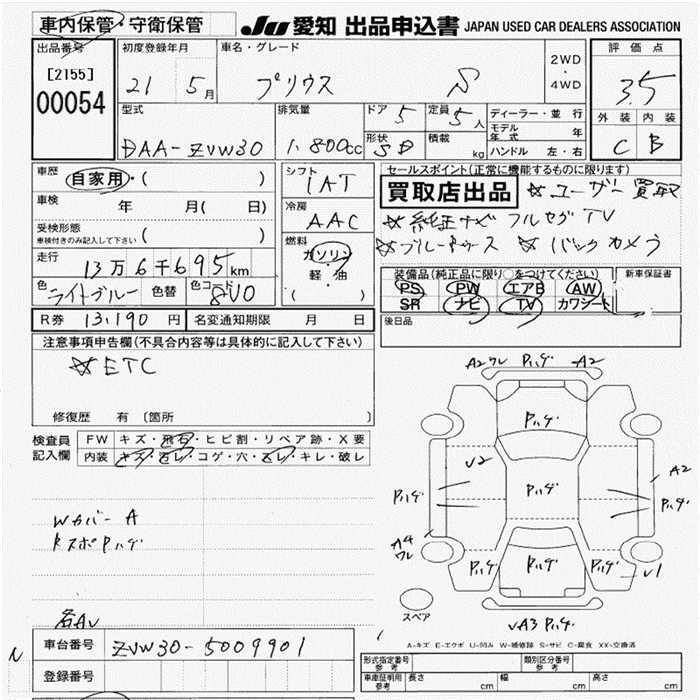 車内保管・守衛保管
JU 愛知 出品申込書 JAPAN USED CAR DEALERS ASSOCIATION
出品番号
[2155]
00054
初度登録年月
21 5月
車名・グレード
プリウス S
2WD
・
4WD
評価点
3.5
外装 内装
C B
型式
DAA-ZVW30
排気量
1.800cc
ドア 5
形状 5D
定員 5人
積載 kg
ディーラー・並行
モデル年式 年
ハンドル 左・右
車歴
自家用・( )
車検 年 月( 日)
受検形態
車検付きのみ記入して下さい ( )
走行
13万6千695km
色 ライトブルー 色替 色コード 8V0
シフト
IAT
冷房
AAC
燃料
ガソリン
軽・油
( )
セールスポイント(正常に機能するものに限ります)
買取店出品 ☆ユーザー買取
☆純正ナビ フルセグTV
☆ブルートゥース ☆バックカメラ
装備品(純正品に限り○をつけてください) 新車保証書
PS PW エアB AW
SR ナビ TV カワシート
後日品
R券 13,190円 名変通知期限 月 日
注意事項申告欄(不具合内容等は具体的に記入して下さい)
☆ETC
修復歴 有 〔箇所 〕
検査員記入欄
FW キズ・飛石・ヒビ割・リペア跡・X要
内装 キズ・コゲ・穴・キレ・破レ
Wカバー A
RスポPハゲ
各AV
A2ワレ Pハゲ A2
Pハゲ
V2
A2
Pハゲ Pハゲ Pハゲ
A4ワレ
Pハゲ Pハゲ Pハゲ V1
スペア
VA3 Pハゲ
A-キズ E-エクボ U-凹み W-補修跡 S-サビ C-腐食 XX-交換済
N
車台番号 ZVW30-5009901
登録番号
形式指定番号参考 類別区分番号参考
車庫証明用参考 長さ cm 幅 cm 高さ cm